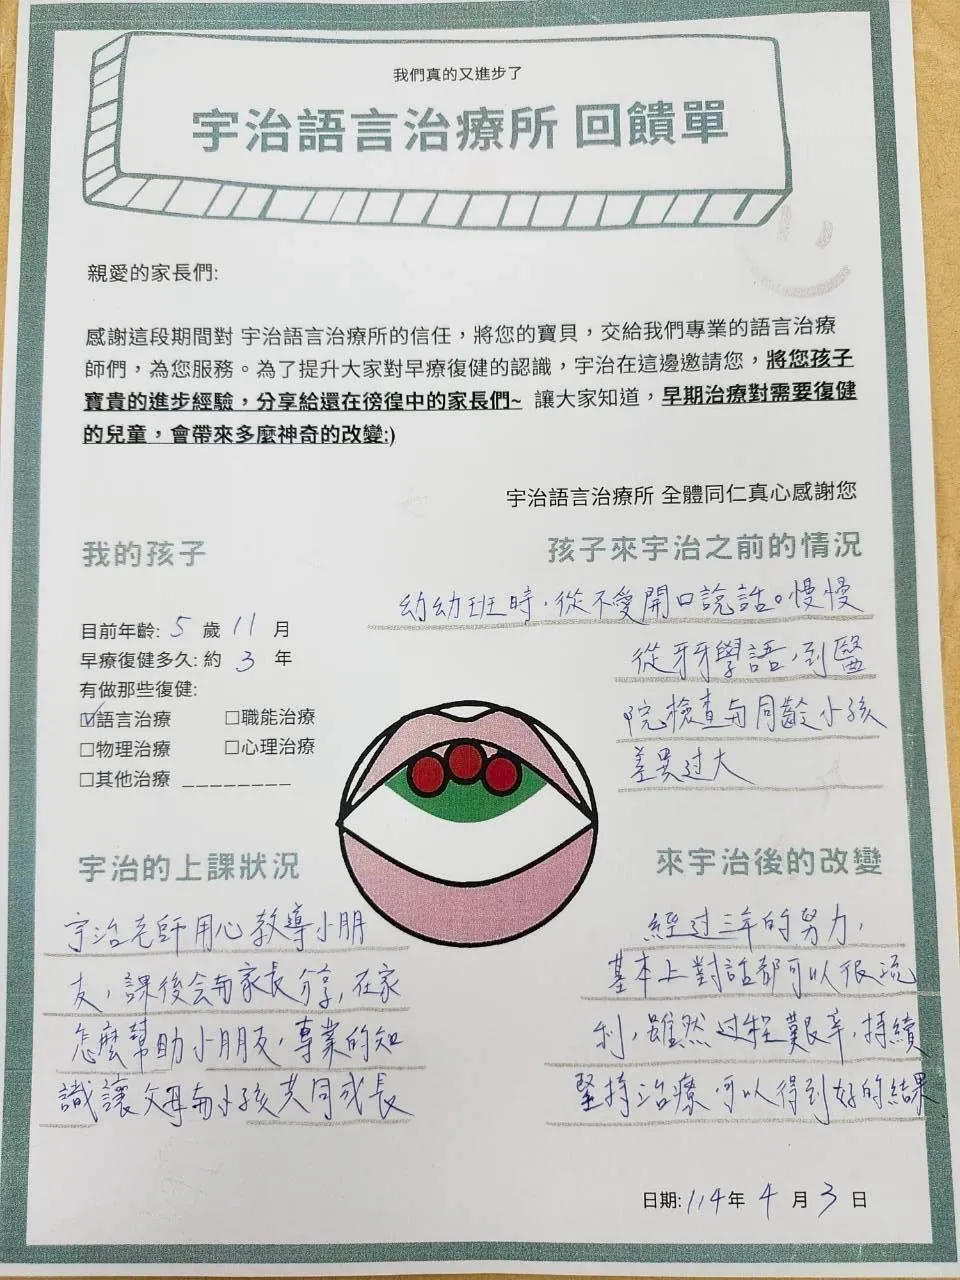 我們真的又進步了
宇治語言治療所 回饋單
親愛的家長們:
感謝這段期間對 宇治語言治療所的信任，將您的寶貝，交給我們專業的語言治療
師們，為您服務。為了提升大家對早療復健的認識，宇治在這邊邀請您，將您孩子
寶貴的進步經驗，分享給還在徬徨中的家長們~ 讓大家知道，早期治療對需要復健
的兒童，會帶來多麼神奇的改變:)
宇治語言治療所 全體同仁真心感謝您
我的孩子
目前年齡: 5 歲 11 月
早療復健多久: 約 3 年
有做那些復健:
☑語言治療 □職能治療
□物理治療 □心理治療
□其他治療 ________
孩子來宇治之前的情況
幼幼班時，從不愛開口說話。慢慢
從牙牙學語，到醫
院檢查与同齡小孩
差異过大
宇治的上課狀況
宇治老師用心教導小朋
友，課後会与家長分享，在家
怎麼幫助小朋友，專業的知
識讓父母与小孩共同成長
來宇治後的改變
經过三年的努力，
基本上對話都可以很流
利，雖然过程艱辛，持續
堅持治療可以得到好的結果
日期: 114年 4 月 3 日